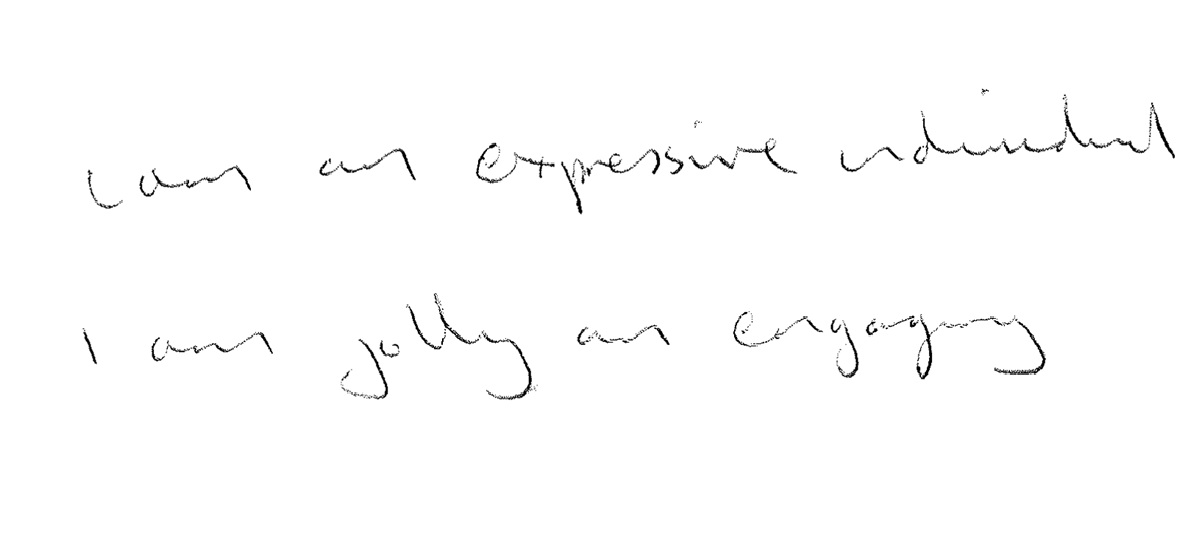 I am an expressive individual
I am jolly an engaging